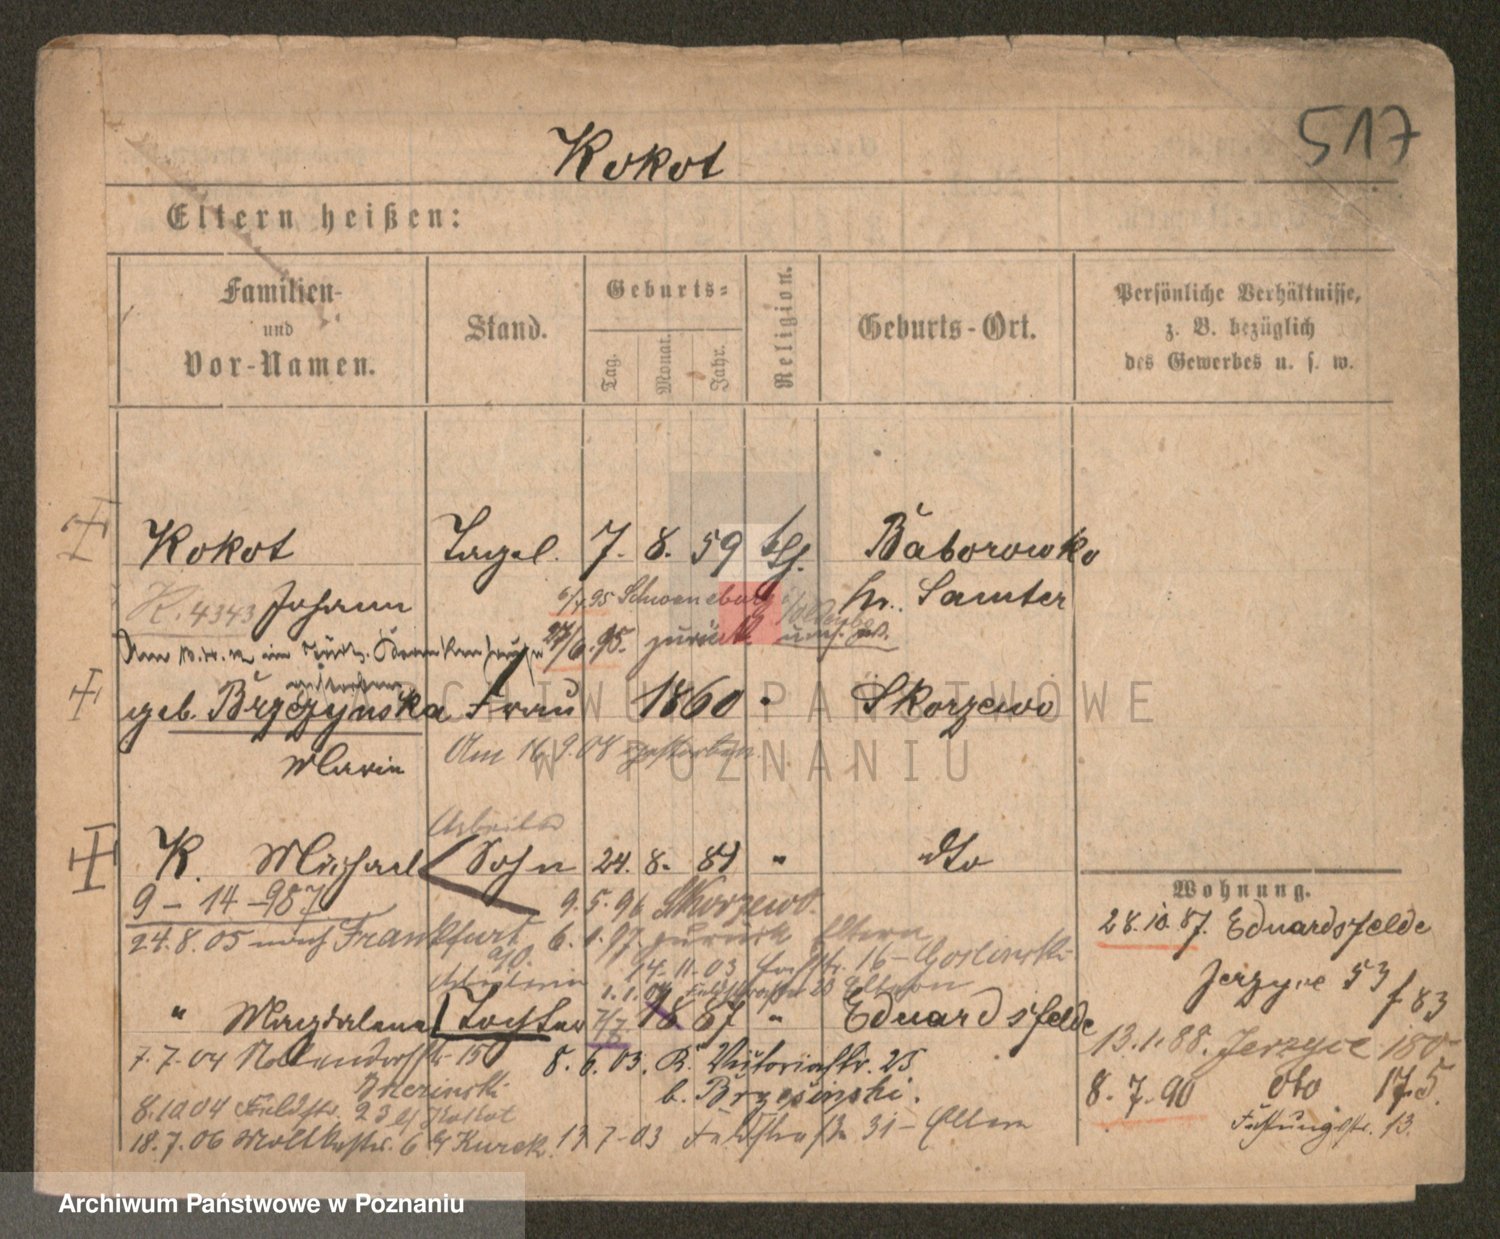 517
Kokot
Eltern heißen:
Familien- und Vor-Namen.
Stand.
Geburts-
Tag.
Monat.
Jahr.
Religion.
Geburts-Ort.
Persönliche Verhältnisse, z. B. bezüglich des Gewerbes u. s. w.
Kokot Tagel. 7. 8. 59 Baborowko
K. 4343 Johann 6/7.95 Samter
27/6.95. zurück
geb. Brzezynska Frau 1860 " Skorzewo
Marie Am 16.9.08 gestorben
Arbeiter
K. Michael Sohn 24. 8. 81 " dto
9 - 14 - 987 9.5.96 Skorzewo.
Wohnung.
28.10.87. Eduardsfelde
24.8.05 nach Frankfurt a/O. 6.1.97. zurück Eltern
14.11.03 16 - Goslinski
Arbeiterin 1.1.04 23 Eltern
Jerzyce 53 f 83
" Magdalena Tochter 7/7 87 " Eduardsfelde
13.1.88. Jerzyce 180
7.7.04 Nollendorfstr. 15 8.6.03. R. Victoriastr. 25
b. Brzesinski.
8.7.90 dto 17.5.
8.10.04 Feldstr. 23 b/ Kokot
Festungsstr. 13.
18.7.06 Moltkestr. 6 b/ Kurek. 17.7-03 Feldstraße 31 - Eltern
ARCHIWUM PAŃSTWOWE
W POZNANIU
Archiwum Państwowe w Poznaniu